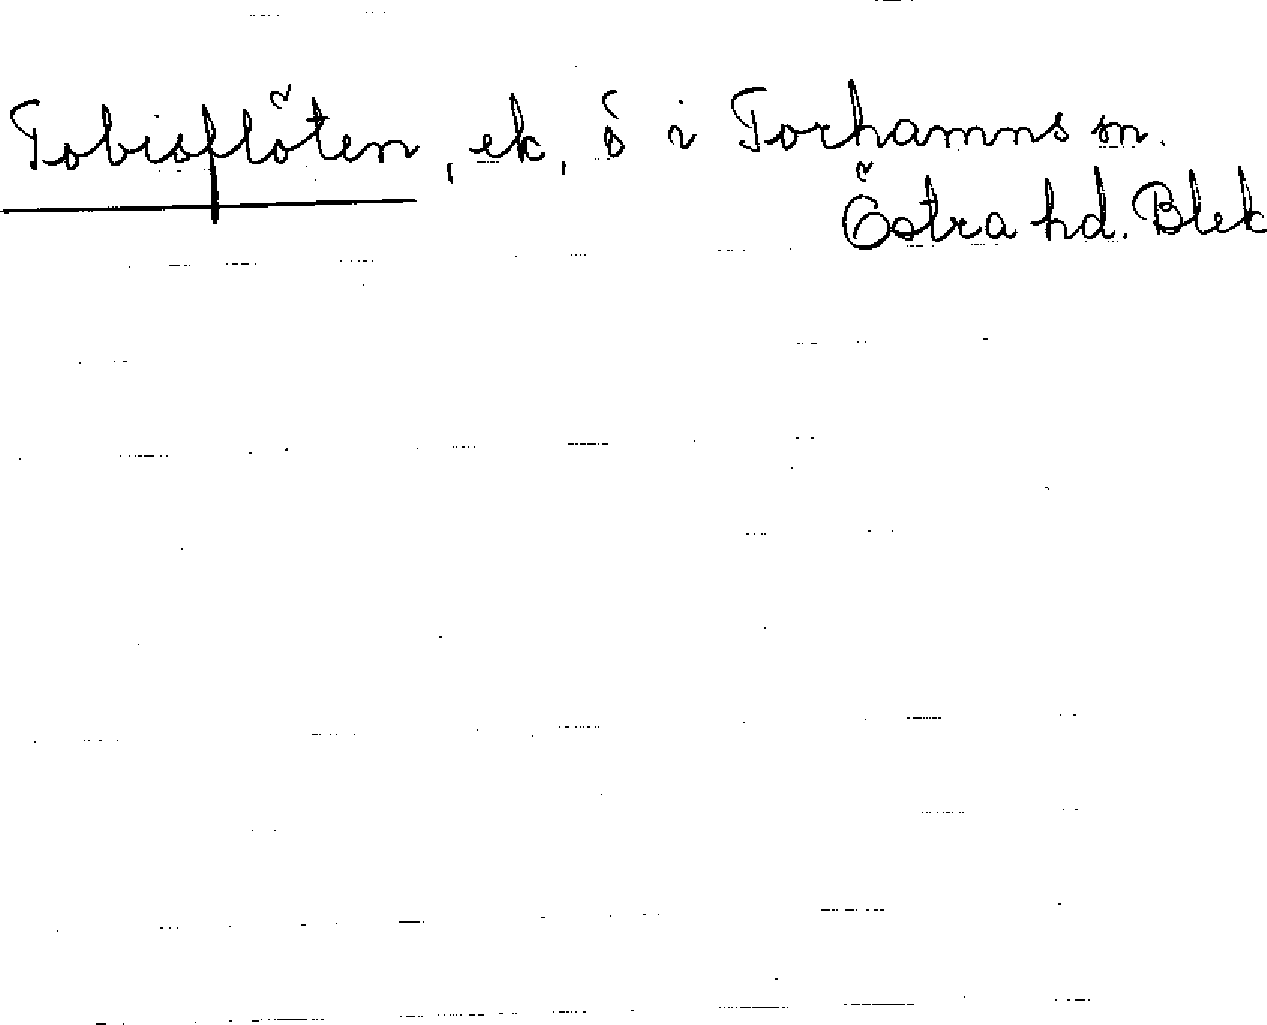 Tobisflöten, ek, ö i Torhamns sn.
Östra hd. Blek